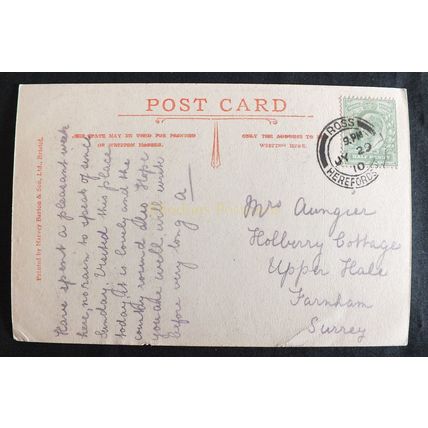 POST CARD
THIS SPACE MAY BE USED FOR PRINTED
OR WRITTEN MATTER.
ONLY THE ADDRESS TO
WRITTEN HERE.
Printed by Harvey Barton & Son, Ltd., Bristol.
Have spent a pleasant week
here, no rain to speak of since
Sunday. Visited this place
today it is lovely and the
country round also. Hope
you are well will write
before very long A
ROSS
9. PM
JY 29
10
HEREFORDS
HALF PENNY
Mrs Aungier
Holberry Cottage
Upper Hale
Farnham
Surrey